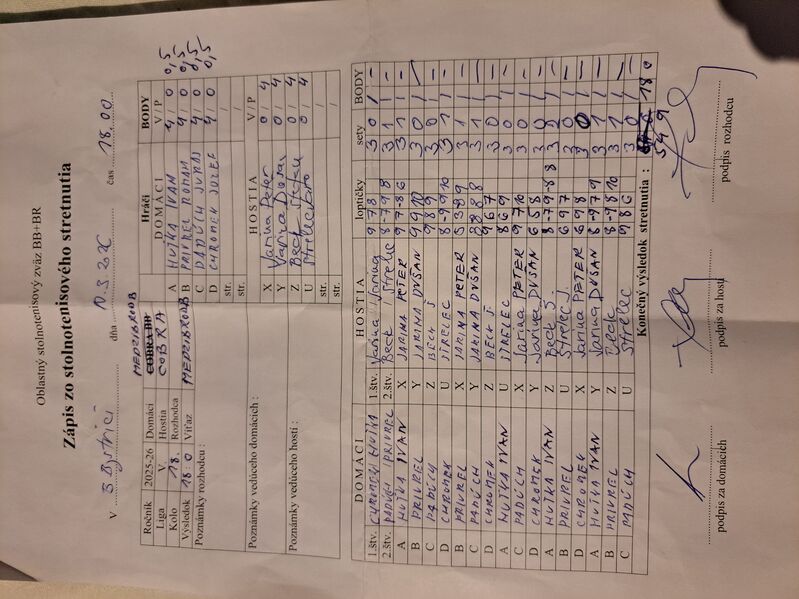 Oblastný stolnotenisový zväz BB+BR
Zápis zo stolnotenisového stretnutia
V B Bystrici dňa 10.3.2026 čas 18.00
Ročník 2025-26 Domáci MEDZIBROD B
Liga V. Hostia COBRA
Kolo 18. Rozhodca
Výsledok 18:0 Víťaz MEDZIBROD B
Poznámky rozhodcu :
Poznámky vedúceho domácich :
Poznámky vedúceho hostí :
Hráči BODY
DOMÁCI V/P
A HUTKA IVAN 4/0 0,5
B PRIVREL ROMAN 4/0 0,5
C PADÚCH JURAJ 4/0 0,5
D CHROMEK JOZEF 4/0 0,5
str. /
str. /
HOSTIA V/P
X Varina Peter 0/4
Y Varina Dušan 0/4
Z Beck Štefan 0/4
U Strelec 0/4
str. /
str. /
DOMÁCI HOSTIA loptičky sety BODY
1.štv. CHROMEK HUTKA 9 7 8 3 0 1 -
2.štv. PADÚCH PRIVREL Beck Strelec 8 -7 9 8 3 1 1 -
A HUTKA IVAN X VARINA PETER 3 1 1 -
B PRIVREL Y VARINA DUŠAN 3 0 1 -
C PADÚCH Z BECK Š. 9 8 9 3 0 1 -
D CHROMEK U STRELEC 8 -9 9 10 3 1 1 -
B PRIVREL X VARINA PETER 3 1 -
C PADÚCH Y VARINA DUŠAN 3 1 1 -
D CHROMEK Z BECK Š. 9 6 7 3 0 1 -
A HUTKA IVAN U STRELEC 8 6 9 3 0 1 -
C PADÚCH X VARINA PETER 9 7 10 3 0 1 -
D CHROMEK Y VARINA DUŠAN 6 5 8 3 0 1 -
A HUTKA IVAN Z Beck Š. 8 -7 9 -8 8 3 2 1 -
B PRIVREL U Strelec J. 6 9 7 3 0 1 -
D CHROMEK X VARINA PETER 6 9 8 3 0 1 -
A HUTKA IVAN Y VARINA DUŠAN 8 -9 7 9 3 1 1 -
B PRIVREL Z Beck 8 -9 8 10 3 1 1 -
C PADÚCH U Strelec 9 8 6 3 0 1 -
Konečný výsledok stretnutia : 54 9 18 0
podpis za domácich podpis za hostí podpis rozhodcu